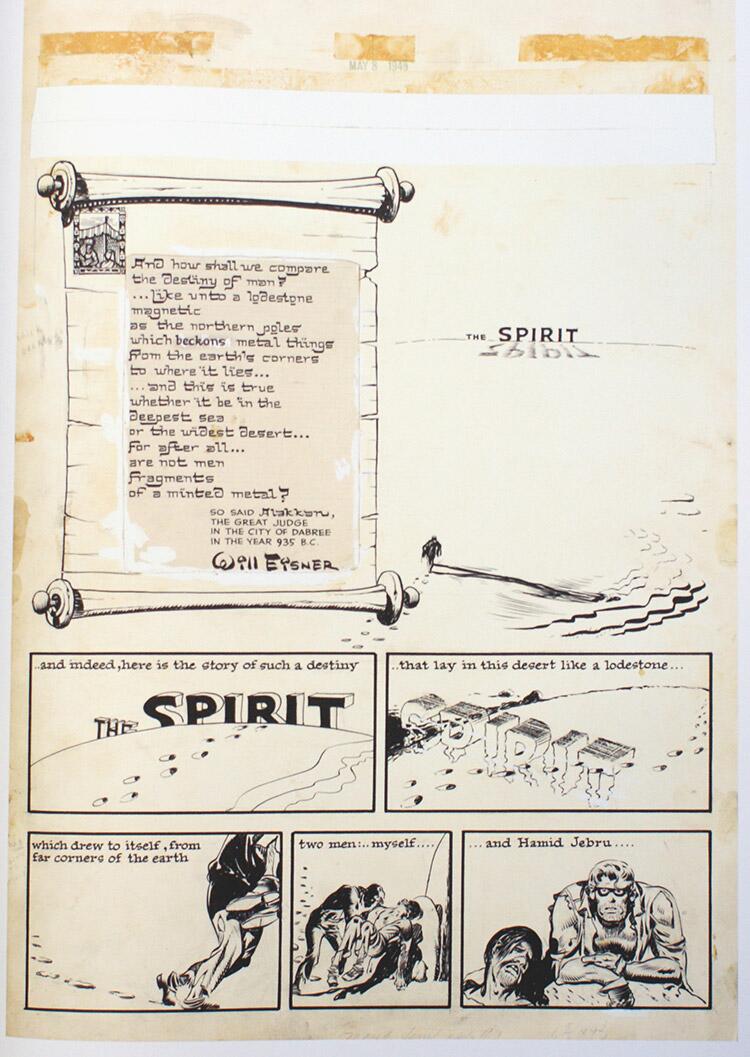 MAY 8 1949
And how shall we compare
the destiny of man?
...like unto a lodestone
magnetic
as the northern poles
which beckons metal things
from the earth's corners
to where it lies...
...and this is true
whether it be in the
deepest sea
or the widest desert...
for after all...
are not men
fragments
of a minted metal?
SO SAID Alakkan,
THE GREAT JUDGE
IN THE CITY OF DABREE
IN THE YEAR 935 B.C.
Will Eisner
THE SPIRIT
..and indeed, here is the story of such a destiny
THE SPIRIT
..that lay in this desert like a lodestone...
SPIRIT
which drew to itself, from
far corners of the earth
two men:..myself....
...and Hamid Jebru....